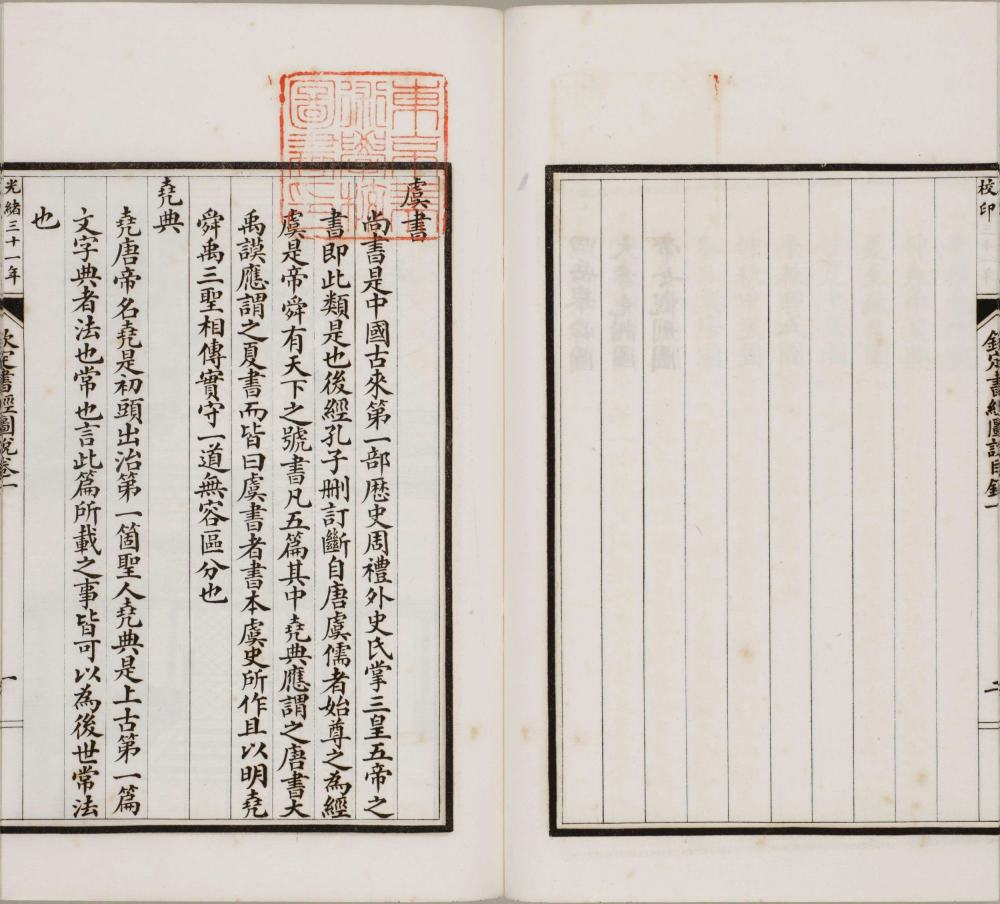 校印
欽定書經圖說目錄
二
虞書
尚書是中國古來第一部歷史周禮外史氏掌三皇五帝之
書即此類是也後經孔子刪訂斷自唐虞儒者始尊之為經
虞是帝舜有天下之號書凡五篇其中堯典應謂之唐書大
禹謨應謂之夏書而皆曰虞書者書本虞史所作且以明堯
舜禹三聖相傳實守一道無容區分也
堯典
堯唐帝名堯是初頭出治第一箇聖人堯典是上古第一篇
文字典者法也常也言此篇所載之事皆可以為後世常法
也
光緒三十一年
欽定書經圖說卷一
一